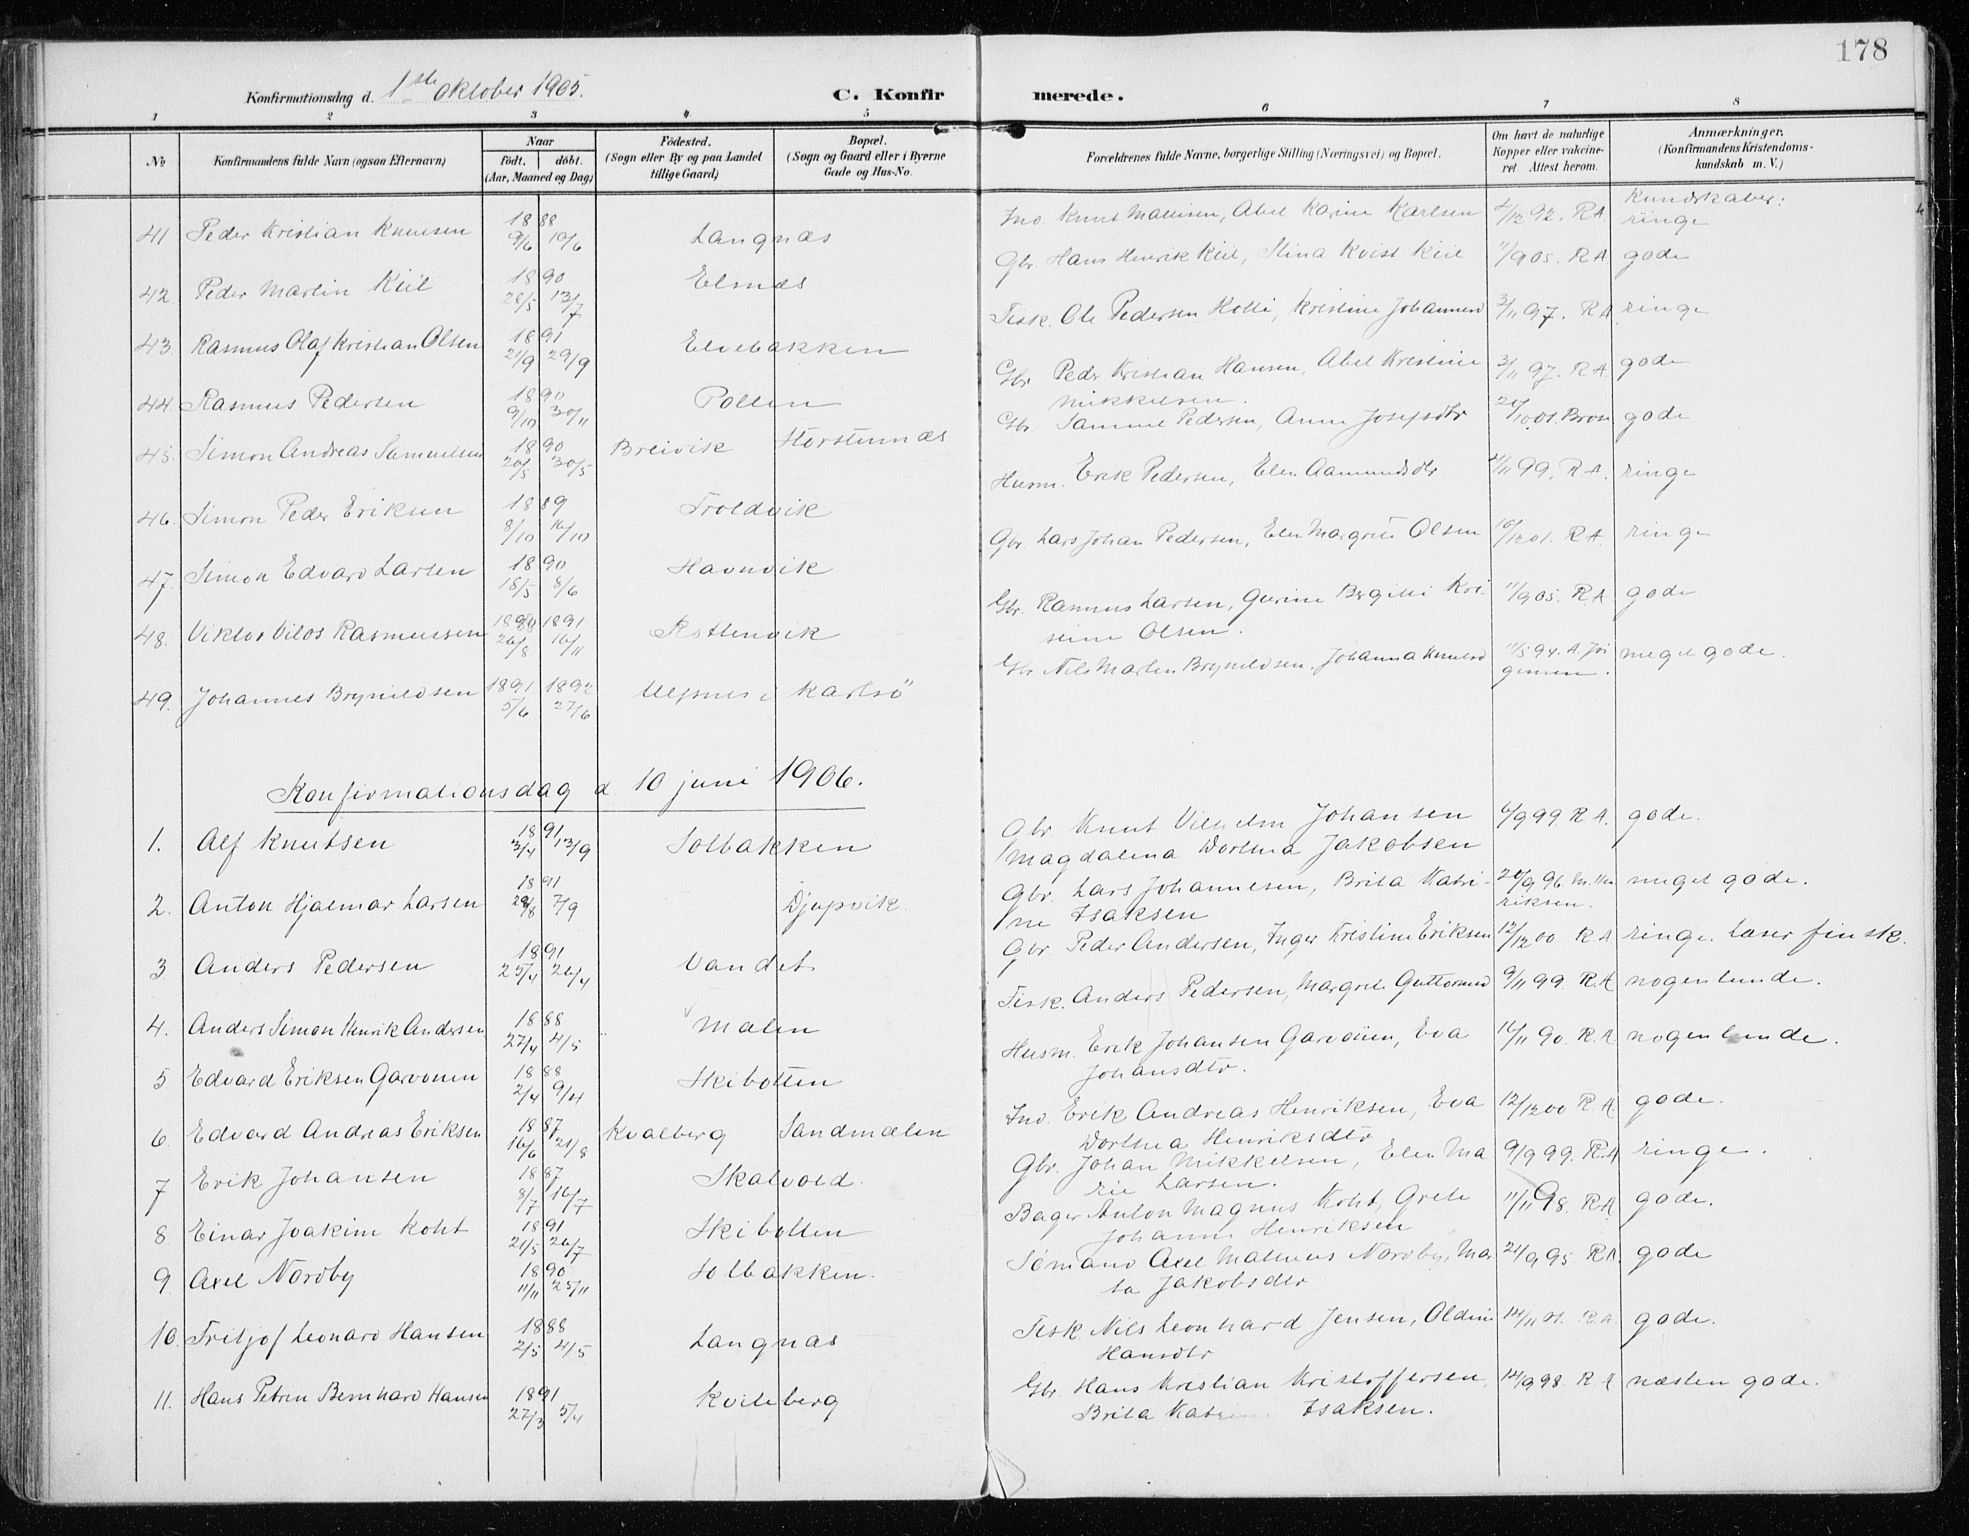 178
Konfirmationsdag d. 1ste oktober 1905.
C. Konfirmerede.
1 2 3 4 5 6 7 8
No
Konfirmandens fulde Navn (ogsaa Efternavn)
Naar
født, døbt.
(Aar, Maaned og Dag)
Fødested.
(Sogn eller By og paa Landet tillige Gaard)
Bopæl.
(Sogn og Gaard eller i Byerne Gade og Hus-No.
Forældrenes fulde Navne, borgerlige Stilling (Næringsvei) og Bopæl.
Om havt de naturlige Kopper eller vakcineret Attest herom.
Anmærkninger,
(Konfirmandens Kristendomskundskab m. V.)
Kundskaber:
41 Peder Kristian Knutsen 1888 9/6 10/6 Langnæs Ind. Knut Mathisen, Abel Karine Karlsen 4/12 92. R A ringe
42 Peder Martin Kiil 1890 28/5 13/7 Elsnæs Gbr. Hans Henrik Kiil, Stina Kvist Kiil 11/9 05. R A gode
43. Rasmus Olaf Kristian Olsen 1891 21/9 29/9 Elvebakken Fisk. Ole Pedersen Holti, Kristine Johannesd 3/11 97. R A ringe
44 Rasmus Pedersen 1890 9/10 30/11 Pollen Gbr. Peder Kristian Hansen, Abel Kristine
Mikkelsen. 3/11 97. R A. gode
45. Simon Andreas Samuelsen 1890 20/5 30/5 Breivik Storstennæs Gbr. Samuel Pedersen, Anne Josefsdtr 20/10 01. Brose gode
46. Simon Peder Eriksen 1889 8/10 16/10 Troldvik Husm. Erik Pedersen, Elen Aamundsdtr 4/11 99. R. A. ringe
47. Simon Edvard Larsen 1890 18/5 8/6 Havnvik Gbr Lars Johan Pedersen, Elen Margret Olsen 10/12 01. R A. ringe
48. Viktor Vilos Rasmussen 1890 1891 26/8 16/11 Rottenvik Gbr. Rasmus Larsen, Gurine Bergitte Kri-
stine Olsen. 11/9 05. R A gode
49. Johannes Brynildsen 1891 1892 5/6 27/6 Ulfsnes i Karlsö Gbr Nils Martin Brynildsen. Johanna Knutsd 11/5 94. A. Jör
gensen. meget gode.
Konfirmationsdag d 10 juni 1906.
1. Alf Knutsen 1891 3/4 13/9 Solbakken Gbr. Knut Vilhelm Johansen
Magdalena Dorthea Jakobsen 6/9 99. R. A. gode.
2. Anton Hjalmar Larsen 1891 28/8 7/9 Djupvik. Gbr. Lars Johannesen, Brita Katri-
ne Isaksen 20/9 96. M. Hen
riksen. meget gode.
3 Anders Pedersen 1891 25/4 26/4 Vandet Gbr. Peder Andersen, Inger Kristine Eriksen 12/12 00 R. A ringe. læser finsk.
4. Anders Simon Henrik Andersen 1888 27/4 4/5 Malen Fisk. Anders Pedersen, Margrete Guttormsd 9/11 99. R. A nogenlunde.
5 Edvard Eriksen Garvonen 1888 2/4 9/4 Skibotten Husm. Erik Johansen Garvonen, Eva
Johansdtr. 16/11 90. R. A nogenlunde.
6. Edvard Andreas Eriksen 1887 16/6 21/8 Kvalberg Sandmælen Ind. Erik Andreas Henriksen, Eva
Dorthea Henriksdtr 12/12 00 R. A. gode.
7 Erik Johansen 1887 8/7 16/7 Skatvold. Gbr. Johan Mikkelsen, Elen Ma
rie Larsen. 9/9 99. R. A ringe.
8. Einar Joakim Koht 1891 21/5 26/7 Skibotten Bager Anton Magnus Koht, Grete
Johanne Henriksen 11/11 98. R A. gode.
9. Axel Nordby 1890 11/11 25/11 Solbakken. Sømand Axel Matheus Nordby, Mar
ta Jakobsdtr 21/9 95. R A. gode
10. Fritjof Leonard Hansen 1888 2/5 4/5 Langnæs Fisk. Nils Leonhard Jensen, Oldine
Hansdtr 14/11 01. R. A. gode.
11. Hans Petren Bernhard Hansen 1891 27/3 5/4 Kviteberg Gbr. Hans Kristian Kristoffersen,
Brita Isaksen. 14/9 98. R. A næsten gode.